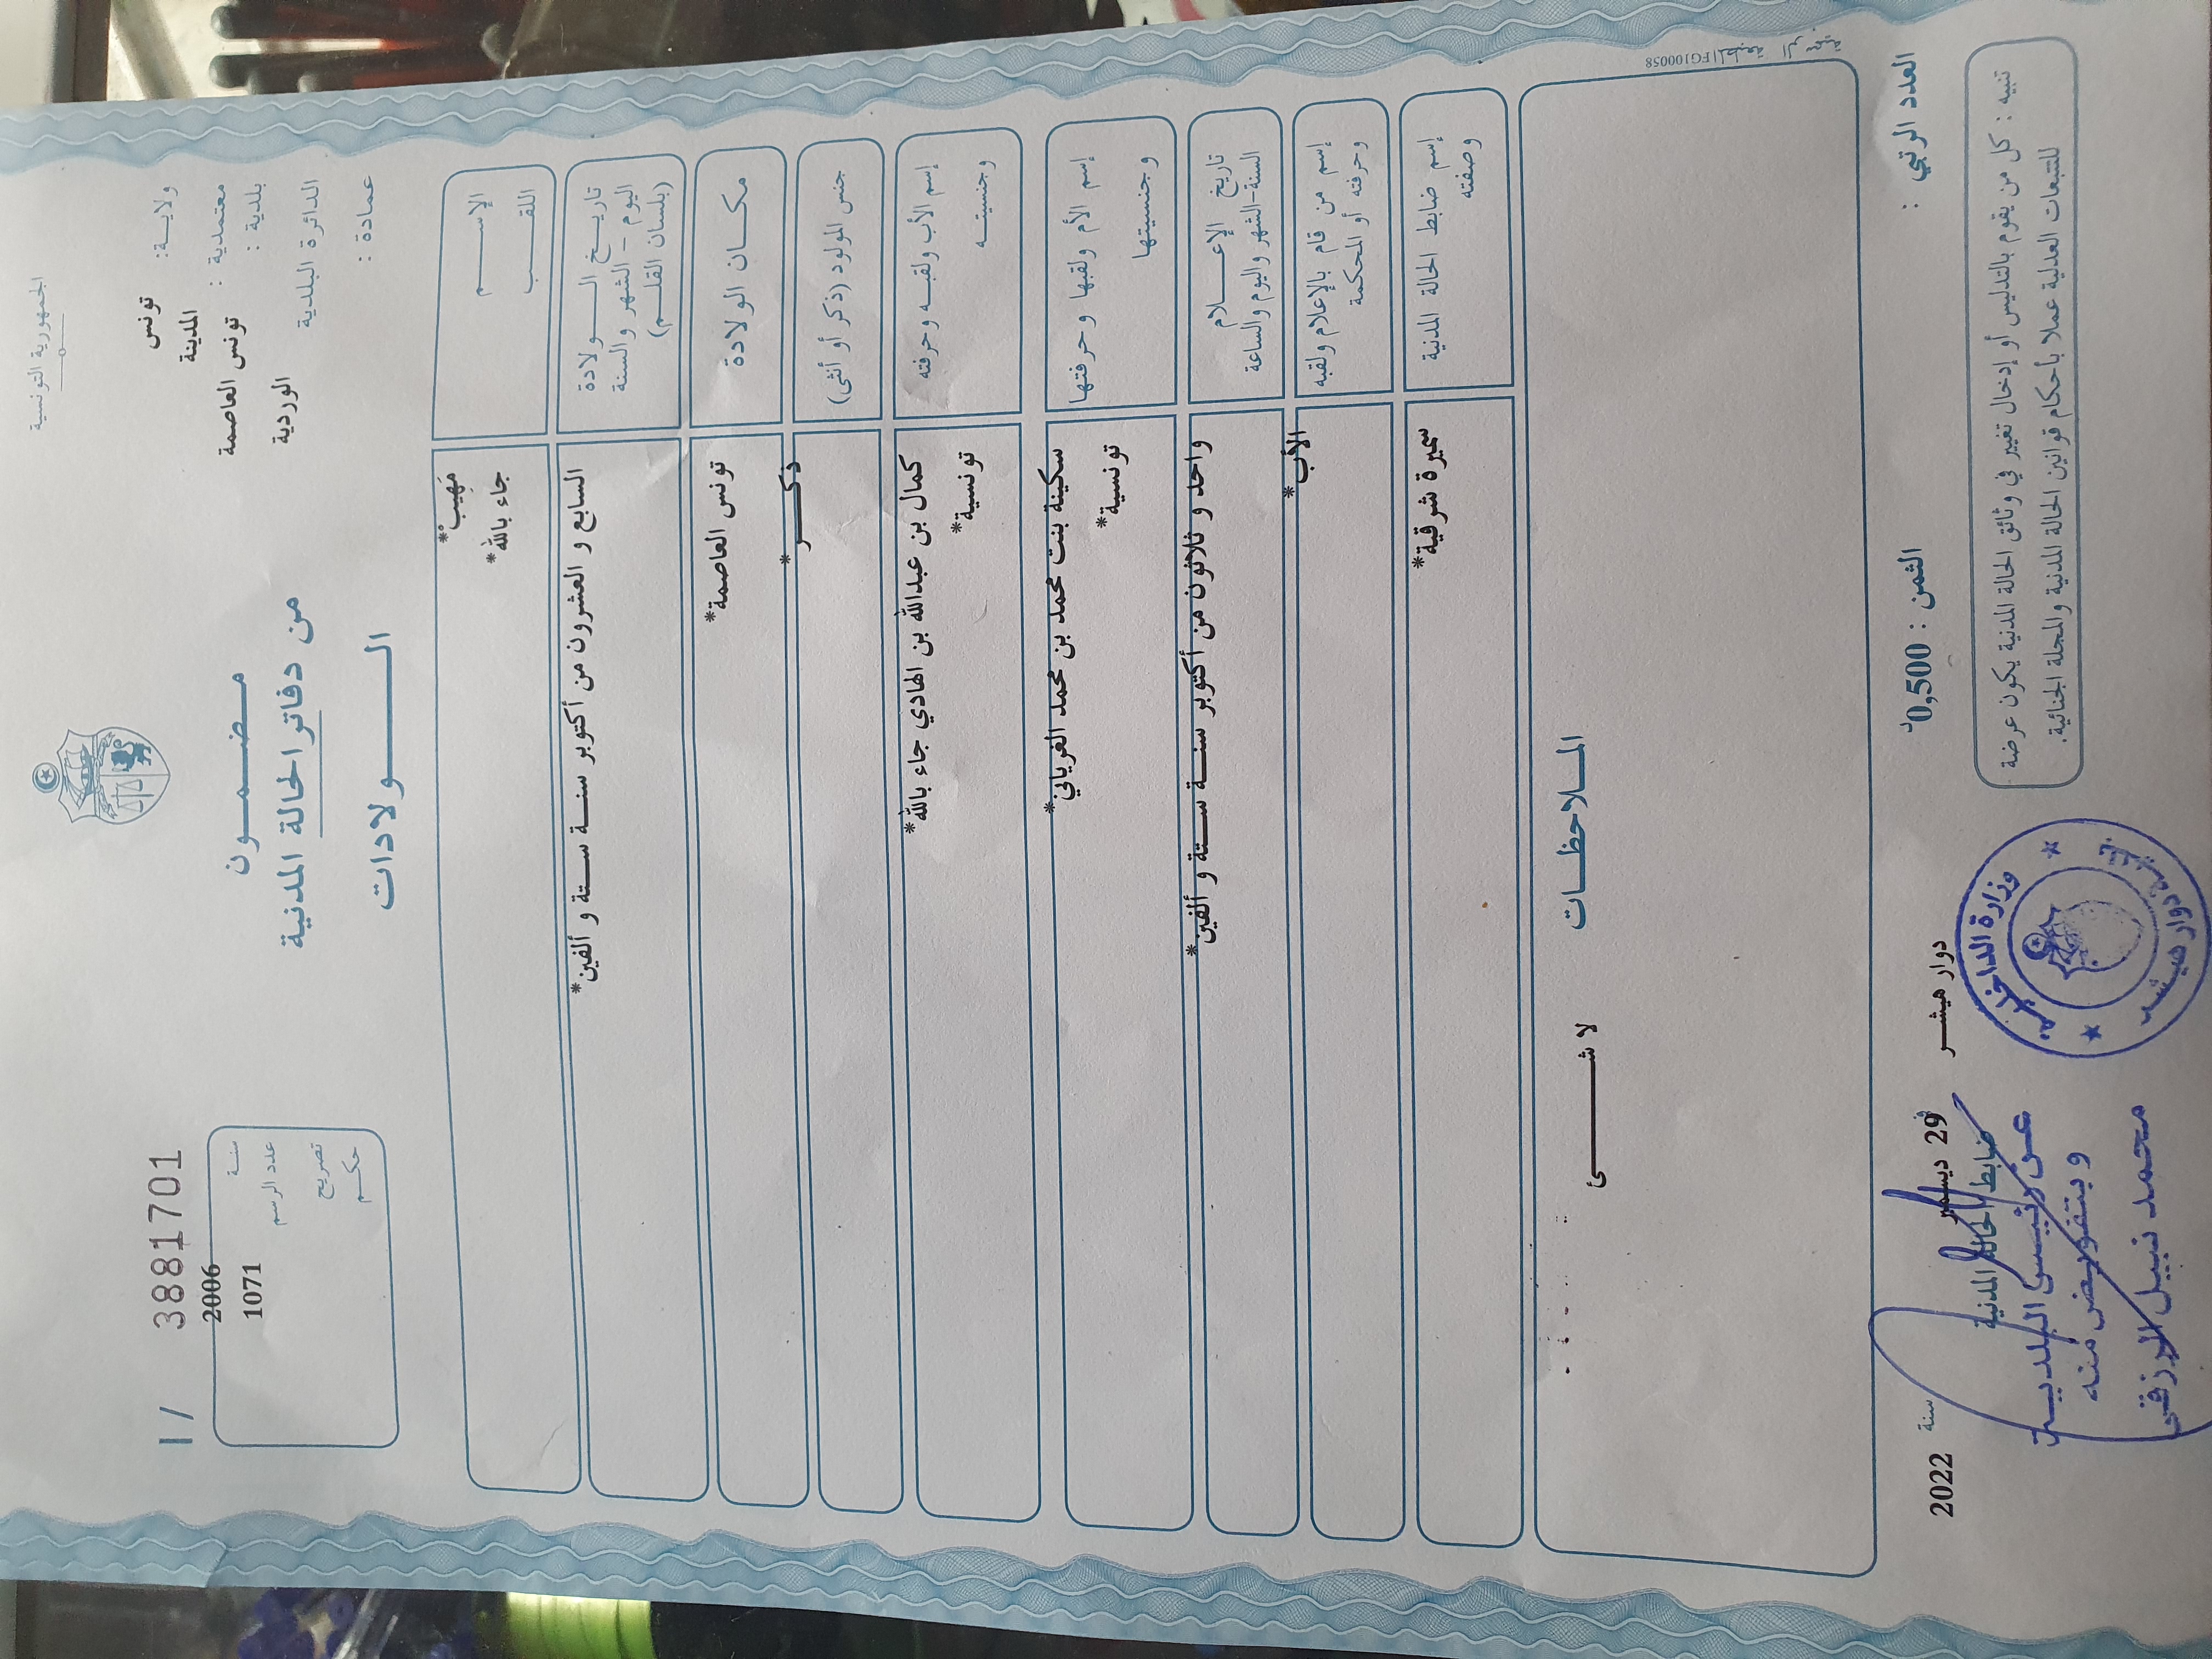 الجمهورية التونسية
ولاية: تونس
معتمدية: المدينة
بلدية: تونس العاصمة
الدائرة البلدية الوردية
عمادة:
مضمون
من دفاتر الحالة المدنية
الولادات
38817701
I /
سنة 2006
عدد الرسم 1071
تصريح
حكم
الإسم مُهِيبْ*
اللقب جاء بالله*
تاريخ الولادة السابع و العشرون من أكتوبر سنة ستة و ألفين*
اليوم - الشهر والسنة
(بلسان القلم)
مكان الولادة تونس العاصمة*
جنس المولود (ذكر أو أنثى) ذكر*
إسم الأب ولقبه وحرفته كمال بن عبدالله بن الهادي جاء بالله*
وجنسيته تونسية*
إسم الأم ولقبها وحرفتها سكينة بنت محمد بن محمد الغرياني*
وجنسيتها تونسية*
تاريخ الإعلام واحد و ثلاثون من أكتوبر سنة ستة و ألفين*
السنة-الشهر واليوم والساعة
إسم من قام بالإعلام ولقبه الأب*
وحرفته أو المحكمة
إسم ضابط الحالة المدنية سميرة شرقية*
وصفته
الملاحظات
لا شئ
FG100058
العدد الرتبي :
الثمن : 0,500د
دوار هيشر 29 ديسمبر سنة 2022
ضابط الحالة المدنية
تنبيه : كل من يقوم بالتدليس أو إدخال تغيير في وثائق الحالة المدنية يكون عرضة
للتتبعات العدلية عملا بأحكام قوانين الحالة المدنية والمجلة الجنائية.
وزارة الداخلية
بلدية دوار هيشر
عن رئيس البلدية
وبتفويض منه
محمد نبيل الرزقي